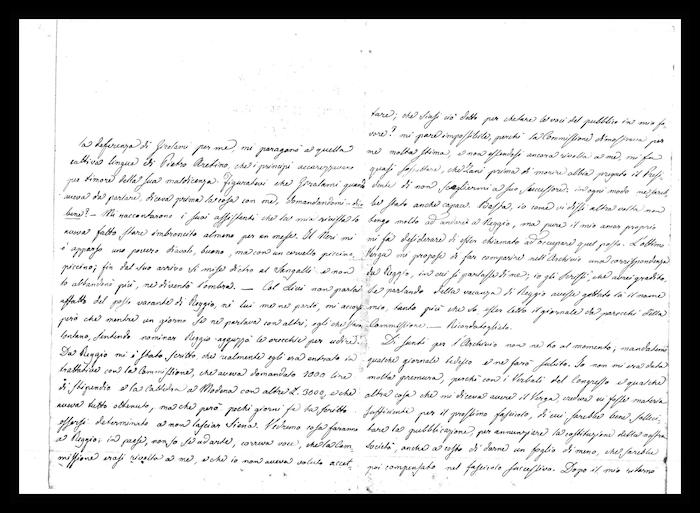 la deferenza di Graziani per me, mi paragonò a quella
cattiva lingua di Pietro Aretino, che i principi accarezzavano
per timore della sua maldicenza. Figuratevi che Graziani quando
aveva da parlare, diceva prima la cosa con me, domandandomi: dico
bene? — Mi raccontarono i suoi assistenti che la mia rivista lo
aveva fatto stare imbronciato almeno per un mese. Il Neri mi
è apparso uno povero diavolo, buono, ma con un cervello piccino,
piccino; fin dal suo arrivo si mise dietro al Sangalli e non
lo abbandonò più, ne diventò l'ombra. — Col Livi non parlai
affatto del posto vacante di Reggio, nè lui me ne parlò, mi accorsi
però che mentre un giorno se ne parlava con altri, egli che stava
lontano, sentendo nominar Reggio aguzzò le orecchie per udire.
Da Reggio mi è stato scritto che realmente egli era entrato in
trattative con la Commissione, che aveva domandato 7000 lire
di stipendio e la Cattedra a Modena con altre L. 3000, e che
aveva tutto ottenuto, ma che però pochi giorni fa ha scritto
essersi determinato a non lasciar Siena. Vedremo cosa faranno
a Reggio; in paese, non so se ad arte, correva voce, che la Com-
missione erasi rivolta a me, e che io non aveva voluto accet-
tare; che siasi ciò detto per chetare le voci del pubblico in mio fa-
vore? mi pare impossibile, perchè la Commissione dimostrava per
me molta stima, e non essendosi ancora rivolta a me, mi fa
quasi sospettare, che Zani prima di morire abbia pregato il Presi-
dente di non scegliermi a suo successore: in ogni modo ne sareb-
be stato anche capace. Basta, io come vi dissi altra volta non
tengo molto ad andare a Reggio, ma pure il mio amor proprio
mi fa desiderare di esser chiamato ad occupare quel posto. L'ottimo
Verga mi propose di far comparire nell'Archivio una corrispondenza
da Reggio, in cui si parlasse di me; io gli scrissi, che avrei gradito,
se parlando della vacanza di Reggio avesse gettato là il nome
mio, tanto più che so esser letto il giornale da parecchi della
Commissione. — Ricordateglielo.
Di sunti per l'Archivio non ne ho al momento; mandatemi
qualche giornale tedesco e ne farò subito. Io non mi era data
molta premura, perchè con i Verbali del Congresso e qualche
altra cosa che mi diceva avere il Verga, credeva vi fosse materia
sufficiente per il prossimo fascicolo, di cui sarebbe bene solleci-
tare la pubblicazione, per annunziare la costituzione della nostra
società, anche a costo di darne un foglio di meno, che sarebbe
poi compensato nel fascicolo successivo. Dopo il mio ritorno